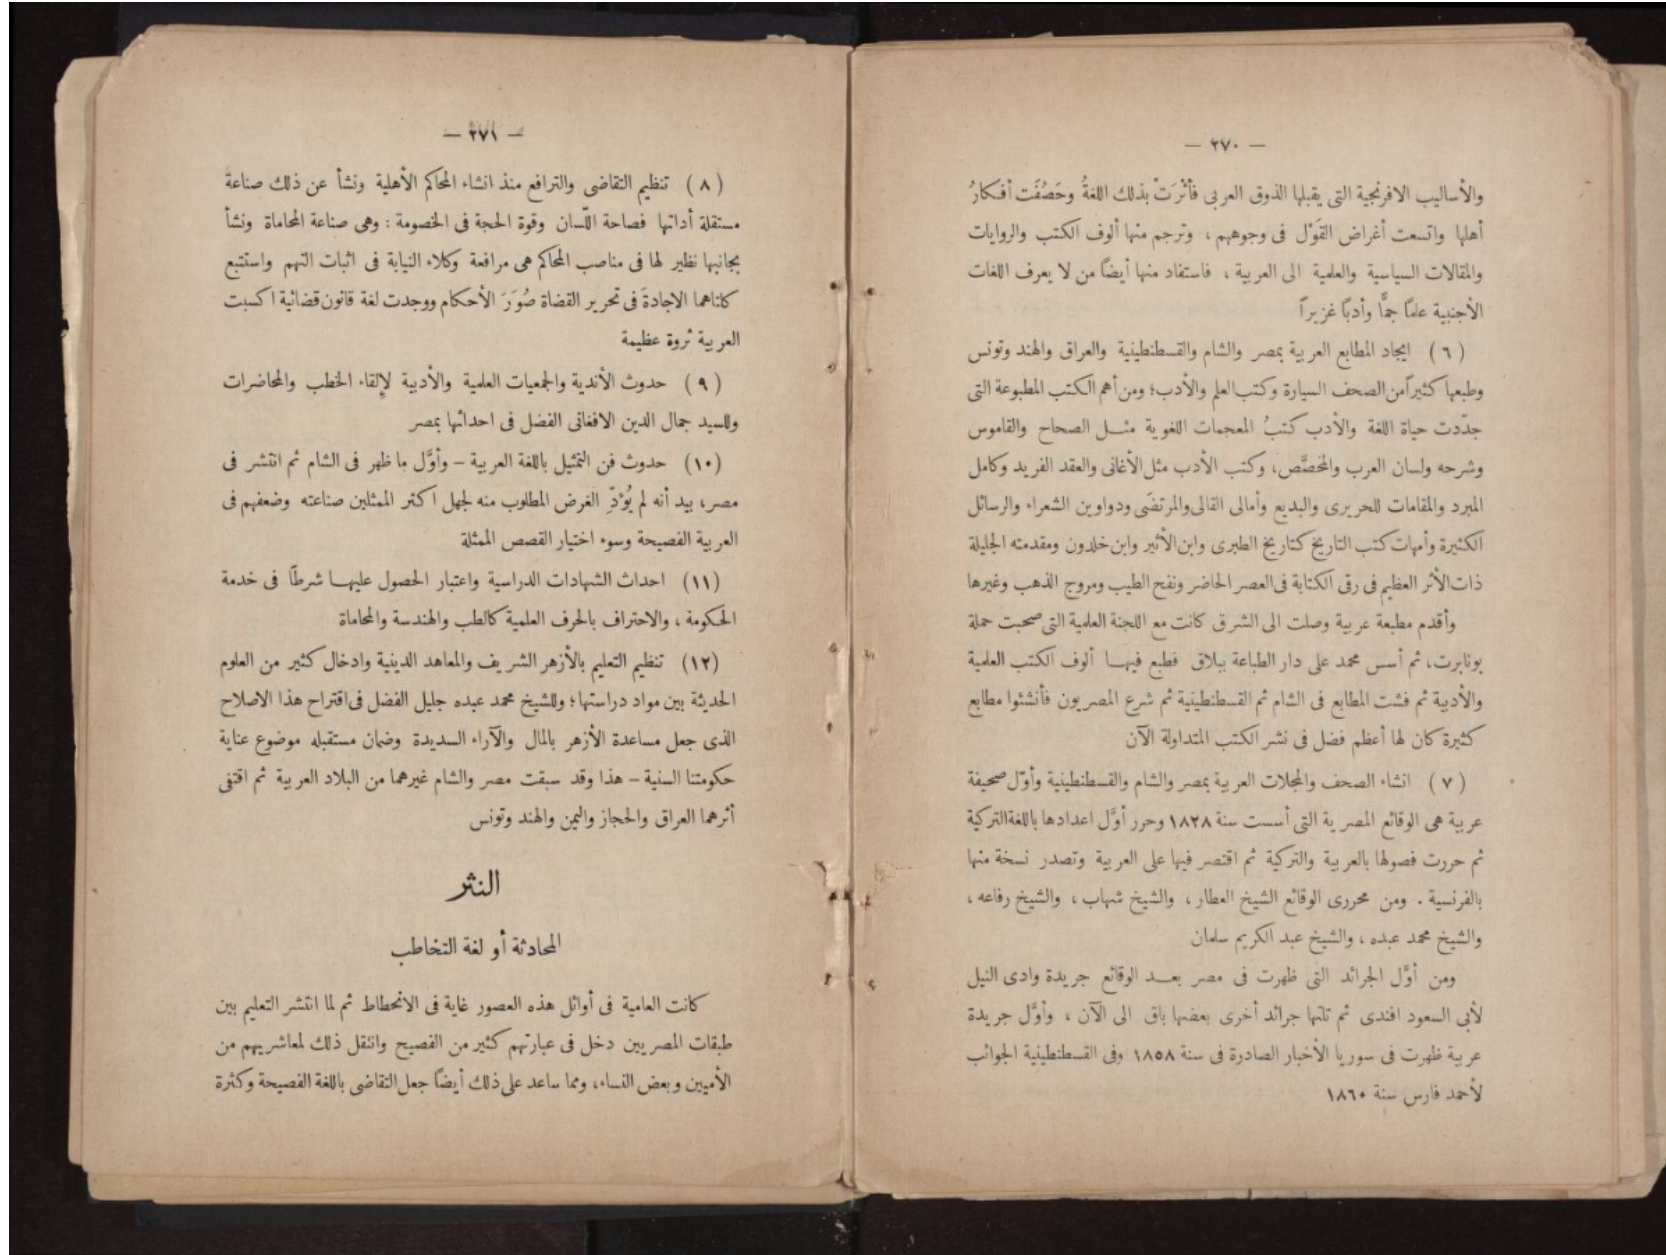 — ٢٧٠ —
والأساليب الافرنجية التى يقبلها الذوق العربى فأثْرَتْ بذلك اللغةُ وحَصُفَت أفكارُ
أهلها واتسعت أغراض القَوْل فى وجوههم ، وترجم منها ألوف الكتب والروايات
والمقالات السياسية والعلمية الى العربية ، فاستفاد منها أيضاً من لا يعرف اللغات
الأجنبية علماً جمًّا وأدبًا غزيراً
( ٦ ) ايجاد المطابع العربية بمصر والشام والقسطنطينية والعراق والهند وتونس
وطبعها كثيراً من الصحف السيارة وكتب العلم والأدب؛ ومن أهم الكتب المطبوعة التى
جدّدت حياة اللغة والأدب كتبُ المعجمات اللغوية مثل الصحاح والقاموس
وشرحه ولسان العرب والمخصَّص، وكتب الأدب مثل الأغانى والعقد الفريد وكامل
المبرد والمقامات للحريرى والبديع وأمالى القالى والمرتضَى ودواوين الشعراء والرسائل
الكثيرة وأمهات كتب التاريخ كتاريخ الطبرى وابن الأثير وابن خلدون ومقدمته الجليلة
ذات الأثر العظيم فى رقى الكتابة فى العصر الحاضر ونفح الطيب ومروج الذهب وغيرها
وأقدم مطبعة عربية وصلت الى الشرق كانت مع اللجنة العلمية التى صحبت حملة
بونابرت، ثم أسس محمد على دار الطباعة ببلاق فطبع فيها ألوف الكتب العلمية
والأدبية ثم فشت المطابع فى الشام ثم القسطنطينية ثم شرع المصريون فأنشئوا مطابع
كثيرة كان لها أعظم فضل فى نشر الكتب المتداولة الآن
( ٧ ) انشاء الصحف والمجلات العربية بمصر والشام والقسطنطينية وأوّل صحيفة
عربية هى الوقائع المصرية التى أسست سنة ١٨٢٨ وحرر أوَّل اعدادها باللغة التركية
ثم حررت فصولها بالعربية والتركية ثم اقتصر فيها على العربية وتصدر نسخة منها
بالفرنسية . ومن محررى الوقائع الشيخ العطار ، والشيخ شهاب ، والشيخ رفاعه ،
والشيخ محمد عبده ، والشيخ عبد الكريم سلمان
ومن أوَّل الجرائد التى ظهرت فى مصر بعد الوقائع جريدة وادى النيل
لأبى السعود افندى ثم تلتها جرائد أخرى بعضها باق الى الآن ، وأوَّل جريدة
عربية ظهرت فى سوريا الأخبار الصادرة فى سنة ١٨٥٨ وفى القسطنطينية الجوائب
لأحمد فارس سنة ١٨٦٠
— ٢٧١ —
( ٨ ) تنظيم التقاضى والترافع منذ انشاء المحاكم الأهلية ونشأ عن ذلك صناعة
مستقلة أداتها فصاحة اللّسان وقوة الحجة فى الخصومة : وهى صناعة المحاماة ونشأ
بجانبها نظير لها فى مناصب المحاكم هى مرافعة وكلاء النيابة فى اثبات التهم واستتبع
كلتاهما الاجادةَ فى تحرير القضاة صُوَرَ الأحكام ووجدت لغة قانون قضائية اكسبت
العربية ثروة عظيمة
( ٩ ) حدوث الأندية والجمعيات العلمية والأدبية لإلقاء الخطب والمحاضرات
وللسيد جمال الدين الافغانى الفضل فى احداثها بمصر
(١٠) حدوث فن التمثيل باللغة العربية – وأوَّل ما ظهر فى الشام ثم انتشر فى
مصر، بيد أنه لم يُؤدِّ الغرض المطلوب منه لجهل اكثر الممثلين صناعته وضعفهم فى
العربية الفصيحة وسوء اختيار القصص الممثلة
(١١) احداث الشهادات الدراسية واعتبار الحصول عليها شرطاً فى خدمة
الحكومة ، والاحتراف بالحرف العلمية كالطب والهندسة والمحاماة
(١٢) تنظيم التعليم بالأزهر الشريف والمعاهد الدينية وادخال كثير من العلوم
الحديثة بين مواد دراستها؛ وللشيخ محمد عبده جليل الفضل فى اقتراح هذا الاصلاح
الذى جعل مساعدة الأزهر بالمال والآراء السديدة وضمان مستقبله موضوع عناية
حكومتنا السنية – هذا وقد سبقت مصر والشام غيرهما من البلاد العربية ثم اقتفى
أثرهما العراق والحجاز واليمن والهند وتونس
النثر
المحادثة أو لغة التخاطب
كانت العامية فى أوائل هذه العصور غاية فى الانحطاط ثم لما انتشر التعليم بين
طبقات المصريين دخل فى عبارتهم كثير من الفصيح وانتقل ذلك لمعاشريهم من
الأميين وبعض النساء، ومما ساعد على ذلك أيضاً جعل التقاضى باللغة الفصيحة وكثرة